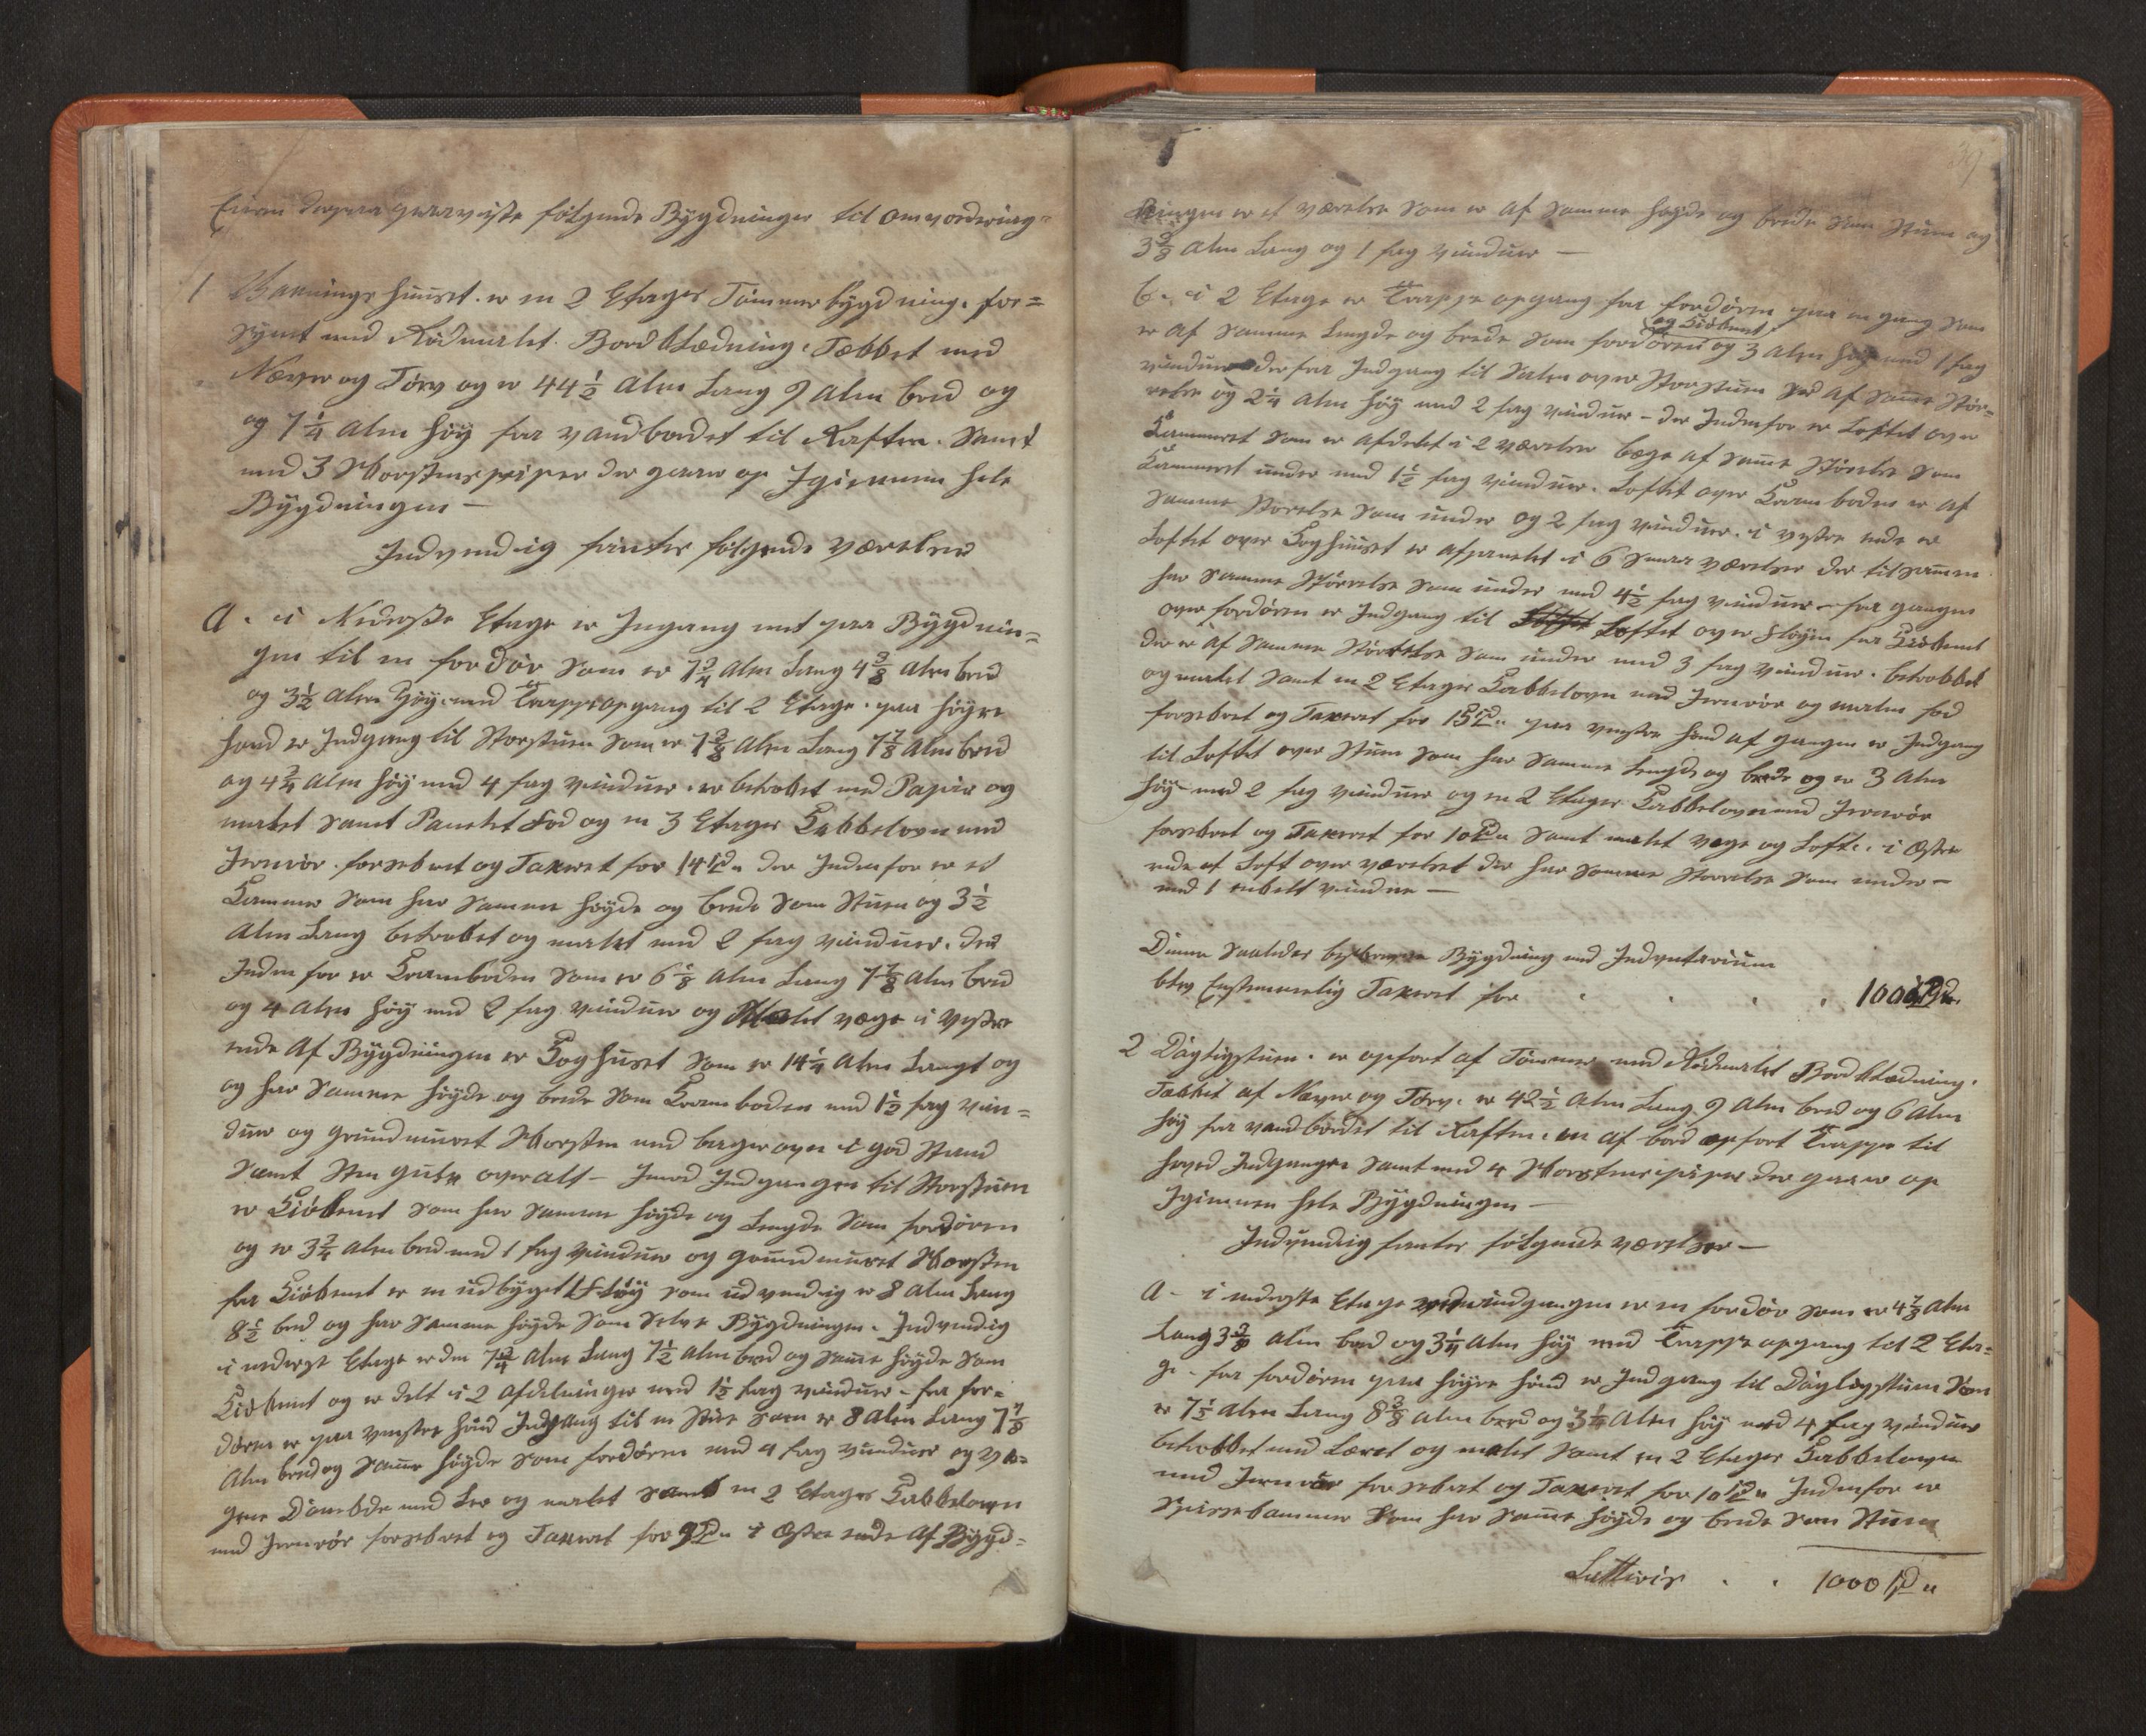 Eieren derpaa paaviiste følgende Bÿgdninger til omvordering
1 Vaanings huuset. er en 2 Etages Tømmerbÿgdning. for=
sÿnet med Rødmalet. Bordklædning. Tækket med
Næver og Tørv og er 44½ Alen Lang 9 Alen bred og
og 7¼ Alen høÿ fra vandbordet til Raften. samt
med 3 Skorstenspiper der gaaer op Igiennem hele
Bÿgdningen –
Indvendig findes følgende værelser
A. i Nederste Etage er Ingang mit paa Bÿgdnin=
gen til en fordør som er 7¾ Alen Lang 4⅜ Alen bred
og 3½ Alen høÿ. med Trappeopgang til 2 Etage. paa høÿre
haand er Indgang til Storstuen som er 7⅜ Alen Lang 7⅞ Alen bred
og 4¼ Alen høÿ med 4 fag vinduer. er betrækket med Papir og
malet samt Panelet fod og en 3 Etages Kakkelovn med
Jernrør. forsekret og Taxeret for 14 Spd. der Indenfor er et
Kammer som har samme høÿde og brede som Stuen og 3½
Alen Lang betrækket og malet med 2 fag vinduer. der
Inden for er Kramboden som er 6⅛ Alen Lang 7⅞ Alen bred
og 4 Alen høÿ med 2 fag vinduer og Malet væge i vestre
ende Af Bÿgdningen er Koghuset som er 14¼ Alen Langt og
og har samme høÿde og brede som Kramboden med 1½ fag vin=
duer og grundmuret Skorsten med bagerovn i god Stand
samt Sten gulv overalt – Imod Indgangen til Storstuen
er Kiøkenet som har samme høÿde og Lengde som fordøren
og er 3¾ Alen bred med 1 fag vinduer og grundmuret Skorsten
fra Kiøkenet er en udbÿget Fløÿ som udvendig er 8 Alen Lang
8½ bred og har samme høÿde som selve Bÿgdningen. Indvendig
i nederste Etage er den 7¾ Alen Lang 7½ Alen bred og same høÿde som
Kiøkenet og er delt i 2 Afdelninger med 1½ fag vinduer – fra for=
døren er paa venstre haand Indgang til en Stue som er 8 Alen Lang 7⅞
Alen bred og same høÿde som fordøren med 4 fag vinduer og væ=
gene med Ler og malet samt en 2 Etages Kakkelovn
med Jernrør forsekret og Taxeret for 9 Spd. i Østre ende Af Bÿgd=
39
ningen er et værelse som er af samme høÿde og brede som Stuen og
3⅜ Alen Lang og 1 fag vinduer –
b. i 2 Etage er Trappe opgang fra fordøren paa en gang som
og Kiøkenet
er af samme Lengde og brede som fordøren og 3 Alen høÿ med 1 fag
vinduer der fra Indgang til Salen over Storstuen som er af same Stør=
relse og 2¼ Alen høÿ med 2 fag vinduer – der Indenfor er Loftet over
Kammeret som er afdelet i 2 værelser bege af same Størrelse som
Kammeret under med 1½ fag vinduer. Loftet over Kramboden er af
samme Storelse som under og 2 fag vinduer. i vestre ende er
Loftet over Koghuuset er afpanelet i 6 smaa værelser der tilsamen
har samme Størrelse som under med 4½ fag vinduer – fra gangen
over fordøren er Indgang til Loftet over Fløÿen fra Kiøkenet
der er af samme Størrelse som under med 3 fag vinduer. betrækket
og malet samt en 2 Etages Kakkelovn med Jernrør og malm fod
forsekret og Taxeret for 15 Spd. paa venstre haand af gangen er Indgang
til Loftet over Stuen som har samme Lengde og brede og er 3 Alen
høÿ – med 2 fag vinduer og en 2 Etages Kakkelovn med Jernrør
forsekret og Taxeret for 10 Spd. samt malet væge og Loft. i Østre
ende af Loft over værelset der har samme Storrelse som under –
med 1 enkelt vindue –
Denne saaledes beskrevne Bÿgdning med Indventarium
blev Enstemmelig Taxeret for . . . . 1000 Spd.
2 Dagligstuen. er opført af Tømmer med Rødmalet Bordklædning.
Tækket af Næver og Tørv. er 42½ Alen Lang 9 Alen bred og 6 Alen
høÿ fra vandbordet til Raften. en af bord opført Trappe til
hoved Indgangen samt med 4 Skorstenspiper der gaaer op
Igiennem hele Bÿgdningen –
Indvendig findes følgende værelser –
A – i nederste Etage ved indgangen er en fordør som er 4⅞ Alen
Lang 3⅜ Alen bred og 3¼ Alen høÿ med Trappe opgang til 2 Eta=
ge – fra fordøren paa høÿre haand er Indgang til Dagligstuen som
er 7½ Alen Lang 8⅜ Alen bred og 3¼ Alen høÿ med 4 fag vinduer
betrækket med Lærret og malet samt en 2 Etages Kakkelovn
med Jernrør forsekret og Taxeret for 10 Spd. Indenfor er
Spissekammer som har same høÿde og brede som Stuen
Latteris . . 1000 Spd.